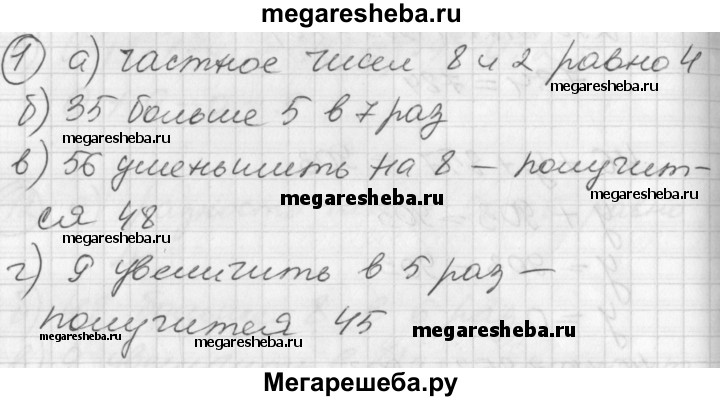 megaresheba.ru
1 а) частное чисел 8 и 2 равно 4
б) 35 больше 5 в 7 раз
megaresheba.ru megaresheba.ru
в) 56 уменьшить на 8 – получит-
megaresheba.ru
ся 48
г) 9 увеличить в 5 раз –
получится 45
megaresheba.ru megaresheba.ru megaresheba.ru
Мегарешеба.ру